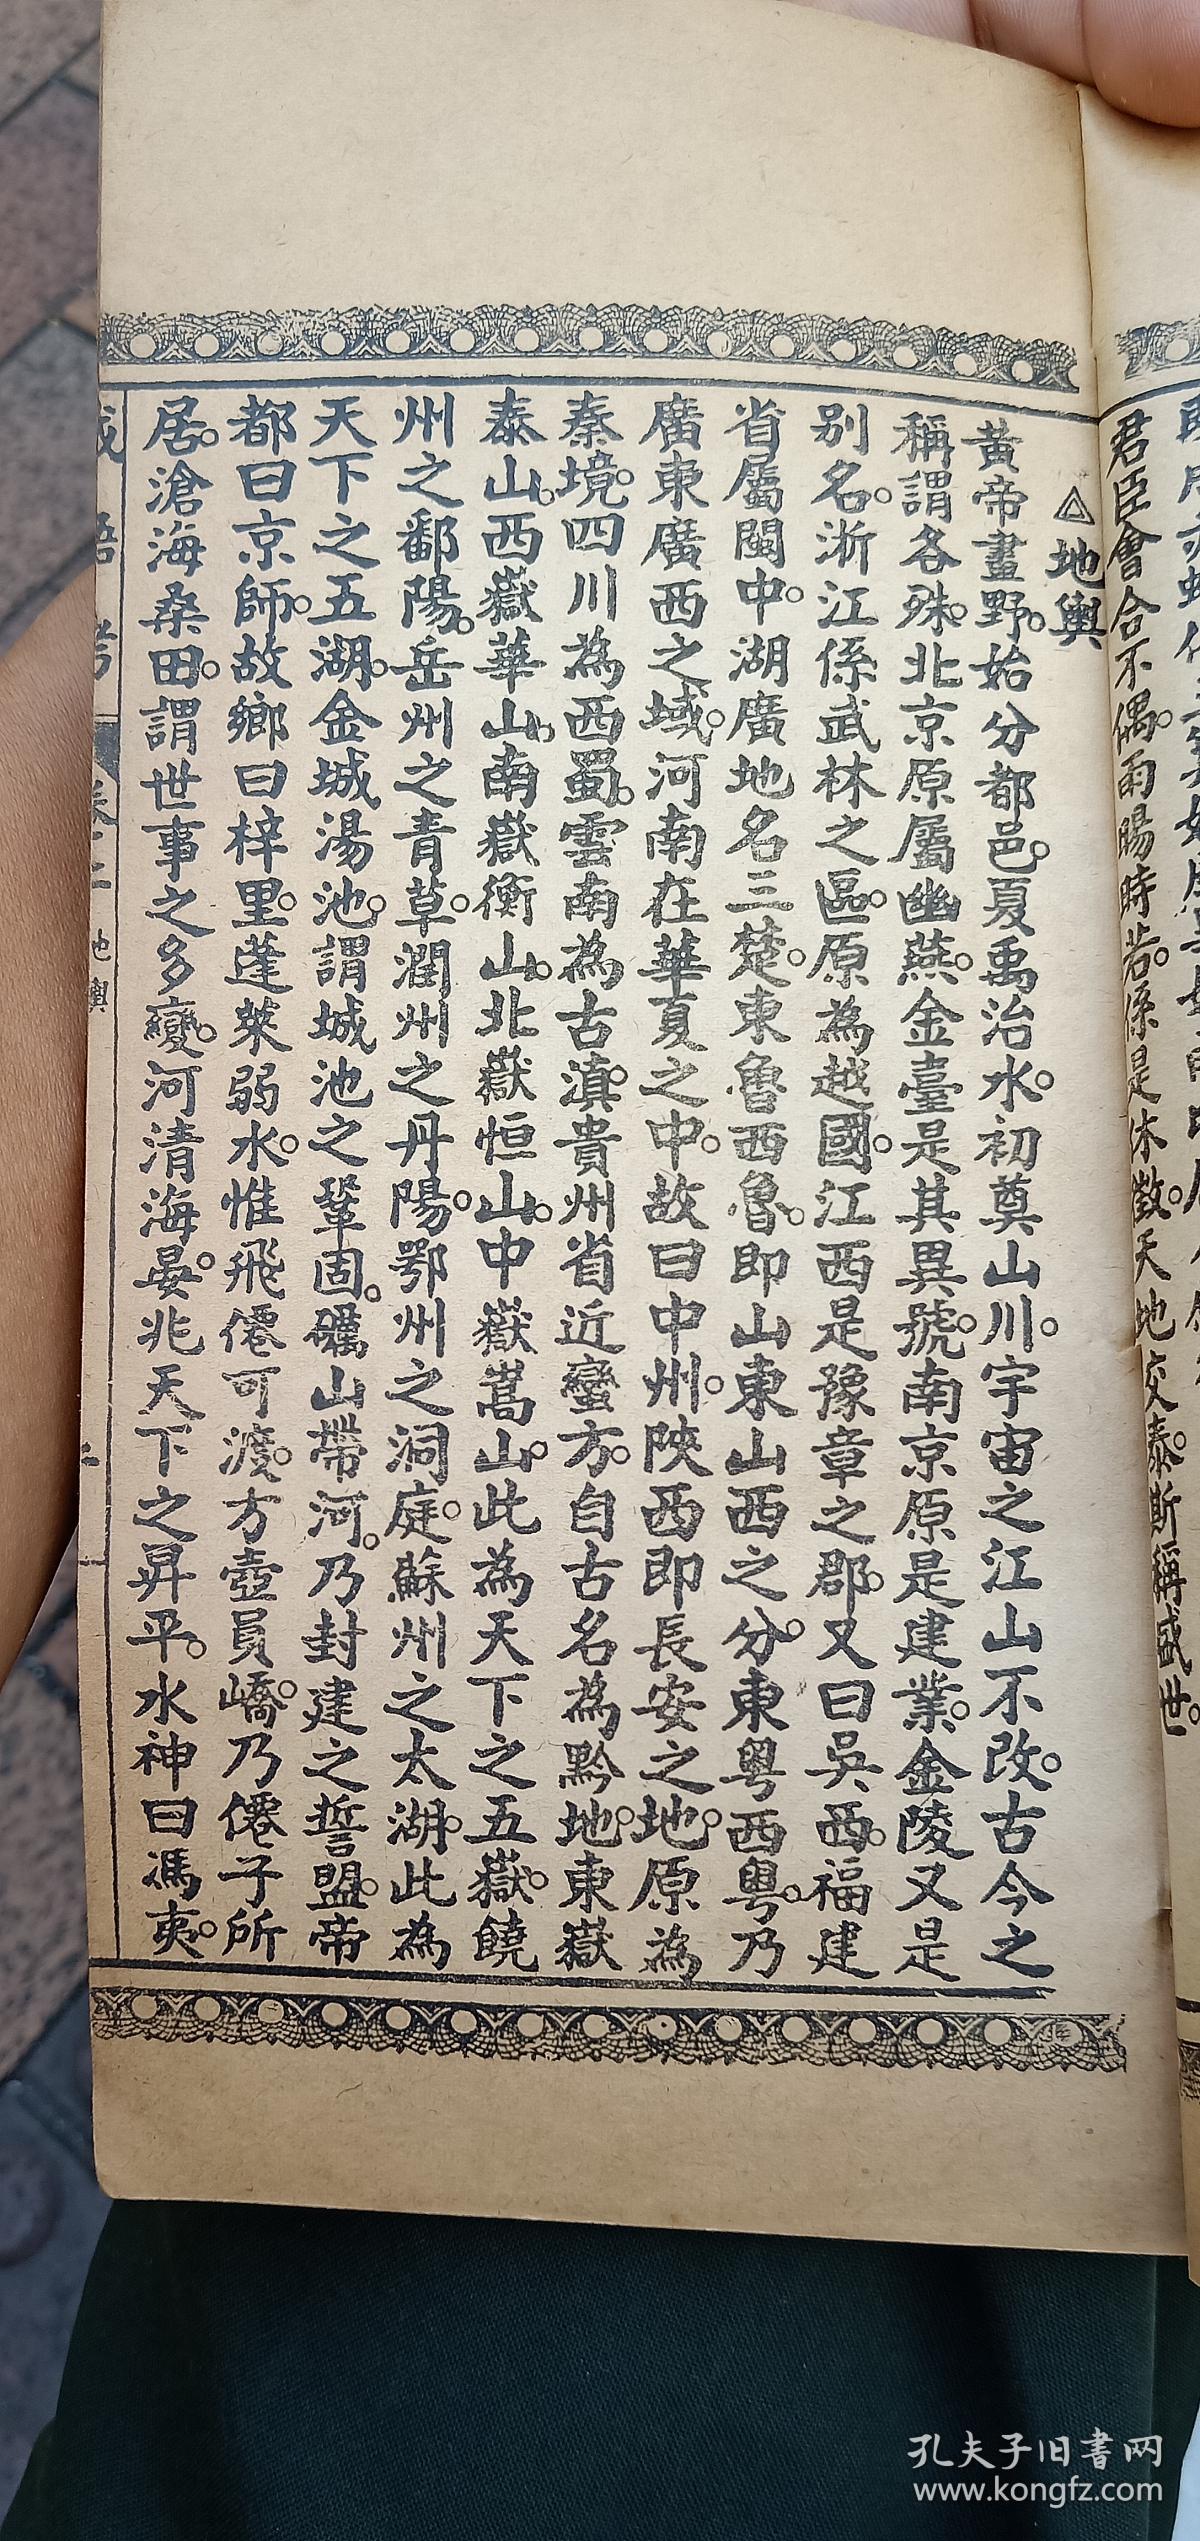 君臣會合不偶。雨暘時若。係是休徵。天地交泰。斯稱盛世。
△地輿
黃帝畫野。始分都邑。夏禹治水。初奠山川。宇宙之江山不改。古今之
稱謂各殊。北京原屬幽燕。金臺是其異號。南京原是建業。金陵又是
別名。浙江係武林之區。原為越國。江西是豫章之郡。又曰吳西。福建
省屬閩中。湖廣地名三楚。東魯西魯。即山東山西之分。東粵西粵。乃
廣東廣西之域。河南在華夏之中。故曰中州。陝西即長安之地。原為
秦境。四川為西蜀。雲南為古滇。貴州省近蠻方。自古名為黔地。東嶽
泰山。西嶽華山。南嶽衡山。北嶽恒山。中嶽嵩山。此為天下之五嶽。饒
州之鄱陽。岳州之青草。潤州之丹陽。鄂州之洞庭。蘇州之太湖。此為
天下之五湖。金城湯池。謂城池之鞏固。礪山帶河。乃封建之誓盟。帝
都曰京師。故鄉曰梓里。蓬萊弱水。惟飛僊可渡。方壺員嶠。乃僊子所
居。滄海桑田。謂世事之多變。河清海晏。兆天下之昇平。水神曰馮夷。
地輿
孔夫子旧书网
www.kongfz.com